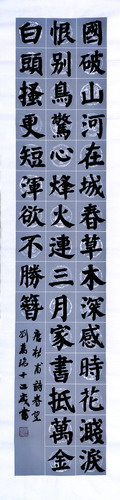 國破山河在城春草木深感時花濺淚
恨别鳥驚心烽火連三月家書抵萬金
白頭搔更短渾欲不勝簪
唐杜甫詩春望
劉